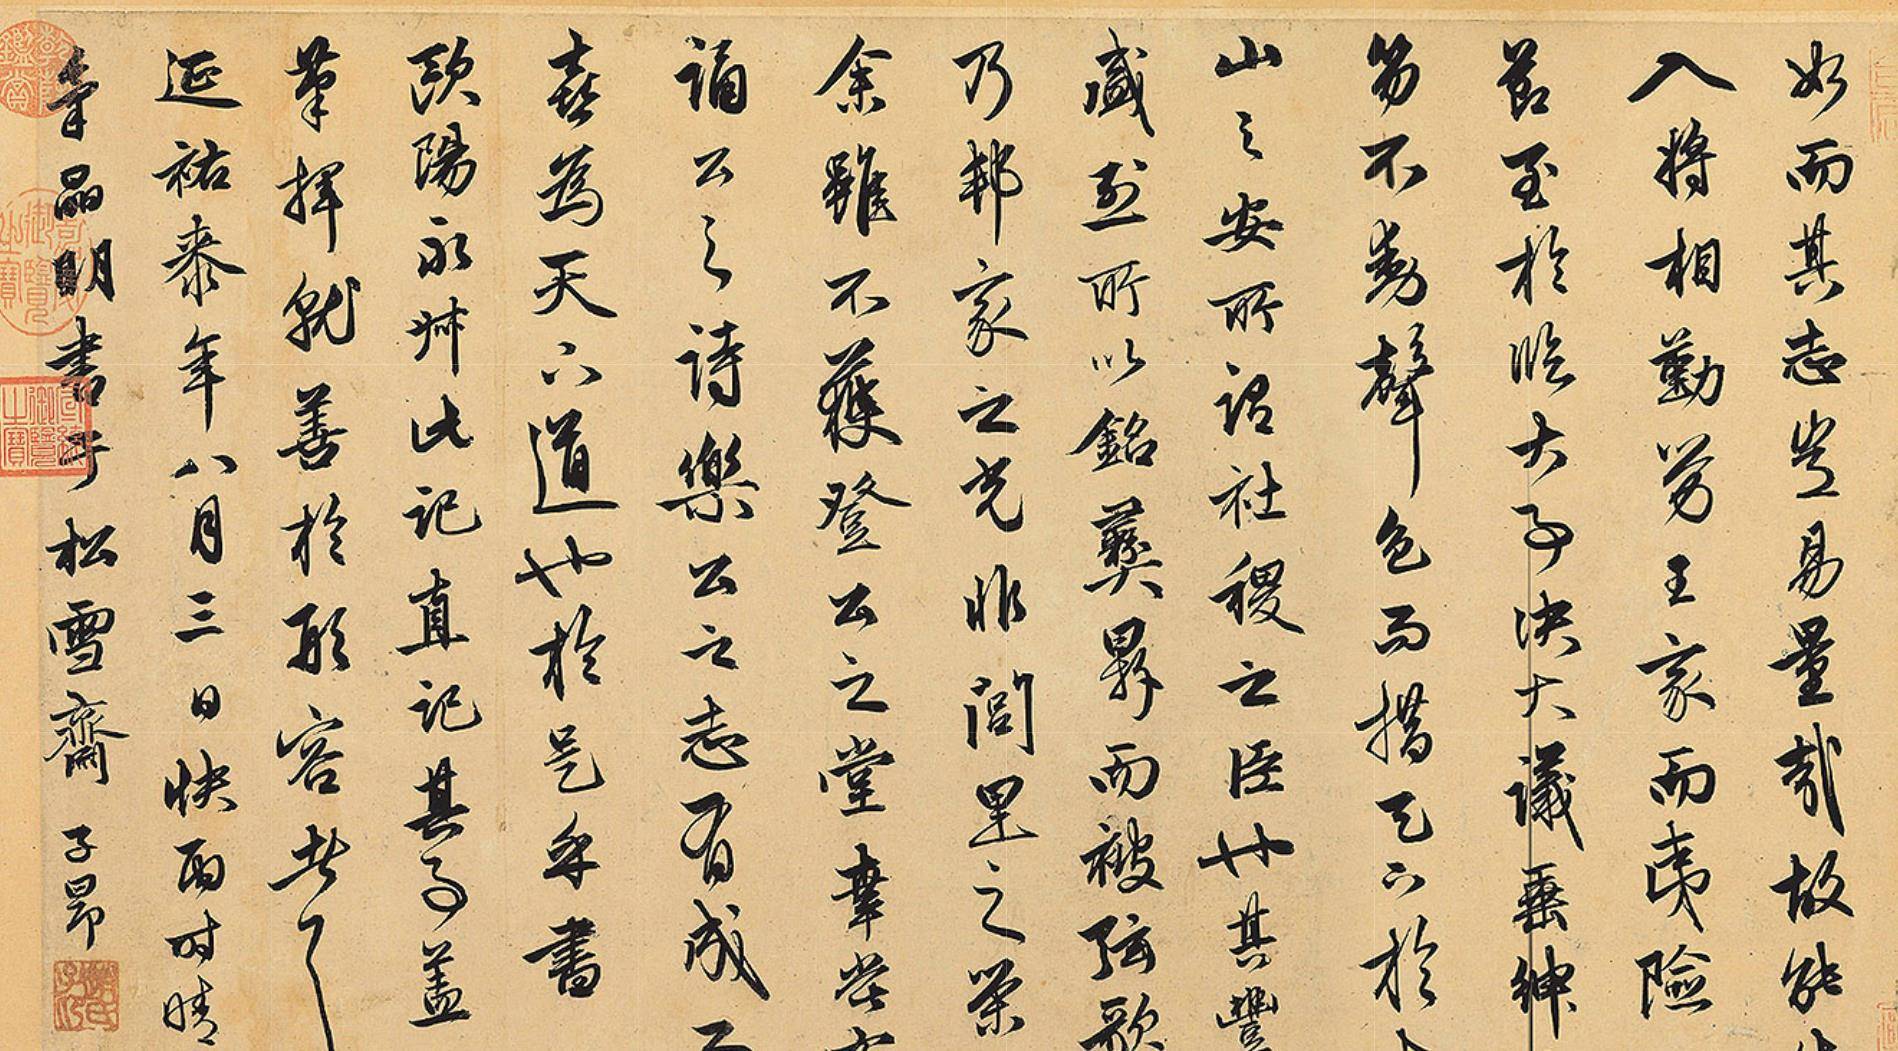 如而其志豈易量哉故能
入將相勤勞王家而夷險
節至於臨大事決大議垂紳
笏不動聲色而措天下於
山之安所謂社稷之臣也其豐
盛烈所以銘彝鼎而被弦歌
乃邦家之光非閭里之榮
余雖不獲登公之堂幸嘗
誦公之詩樂公之志有成
喜為天下道也於是乎書
歐陽永叔此記直記其事蓋
筆揮就善於形容者
延祐年八月三日快雨時晴
明書于松雪齋 子昂
乾隆鑑賞
嘉慶御覽之寶
宣統御覽之寶
趙氏子昂